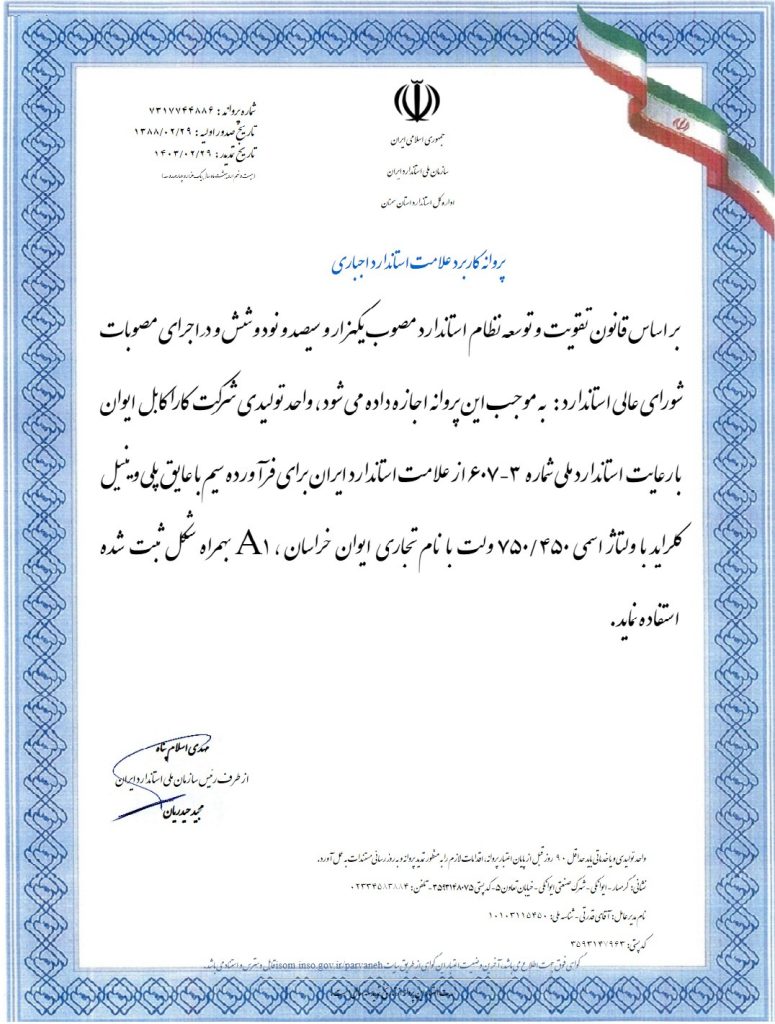 شماره پروانه : ۷۳۱۷۷۴۴۸۸۶
تاریخ صدور اولیه : ۱۳۸۸/۰۲/۲۹
تاریخ تمدید : ۱۴۰۳/۰۲/۲۹
(بیست و نهم اردیبهشت ماه سال یک هزار و چهارصد و سه)
جمهوری اسلامی ایران
سازمان ملی استاندارد ایران
اداره کل استاندارد استان سمنان
پروانه کاربرد علامت استاندارد اجباری
بر اساس قانون تقویت و توسعه نظام استاندارد مصوب یکهزار و سیصد و نود و شش و در اجرای مصوبات
شورای عالی استاندارد : به موجب این پروانه اجازه داده می شود ، واحد تولیدی شرکت کارا کابل ایوان
با رعایت استاندارد ملی شماره ۳-۶۰۷ از علامت استاندارد ایران برای فرآورده سیم با عایق پلی وینیل
کلراید با ولتاژ اسمی ۷۵۰/۴۵۰ ولت با نام تجاری ایوان خراسان ، A۱ بهمراه شکل ثبت شده
استفاده نماید.
مهدی اسلام پناه
از طرف رئیس سازمان ملی استاندارد ایران
مجید حیدریان
واحد تولیدی و یا خدماتی باید حداقل ۹۰ روز قبل از پایان اعتبار پروانه، اقدامات لازم را به منظور تمدید پروانه و به روز رسانی مستندات به عمل آورد.
نشانی: گرمسار - ایوانکی - شهرک صنعتی ایوانکی - خیابان تعاون ۵- کد پستی ۳۵۹۳۱۴۸۰۷۵- تلفن: ۰۲۳۳۴۵۸۳۸۸۴
نام مدیر عامل: آقای قدرتی - شناسه ملی: ۱۰۱۰۳۱۱۵۴۵۰
کد پستی: ۳۵۹۳۱۴۷۹۶۳
گواهی فوق جهت اطلاع می باشد، آخرین وضعیت اعتبار این گواهی از طریق سایت isom.inso.gov.ir/parvaneh قابل دسترس و استناد می باشد.